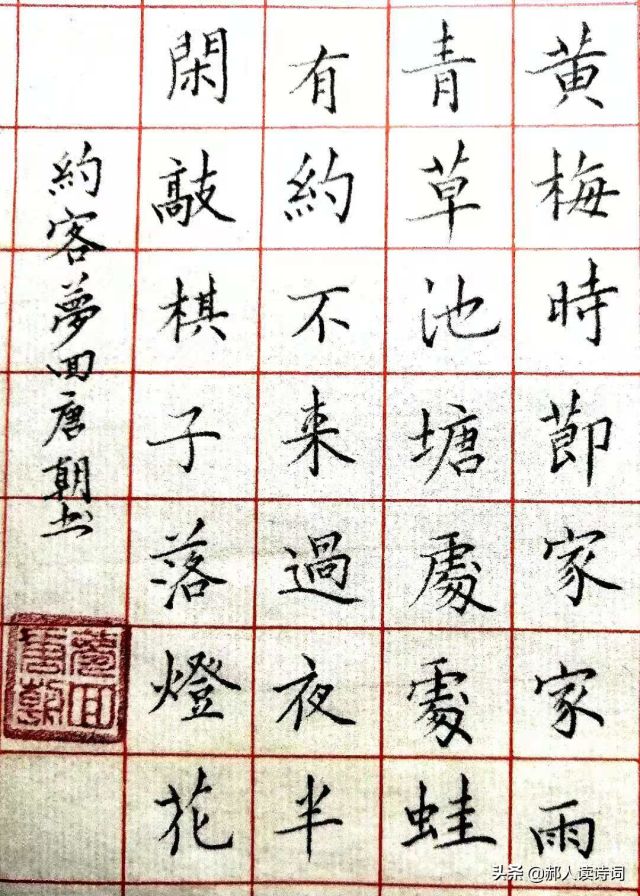 黄梅時節家家雨
青草池塘處處蛙
有約不来過夜半
閑敲棋子落燈花
約客夢囬唐朝书
夢回唐朝
头条 @郝人读诗词